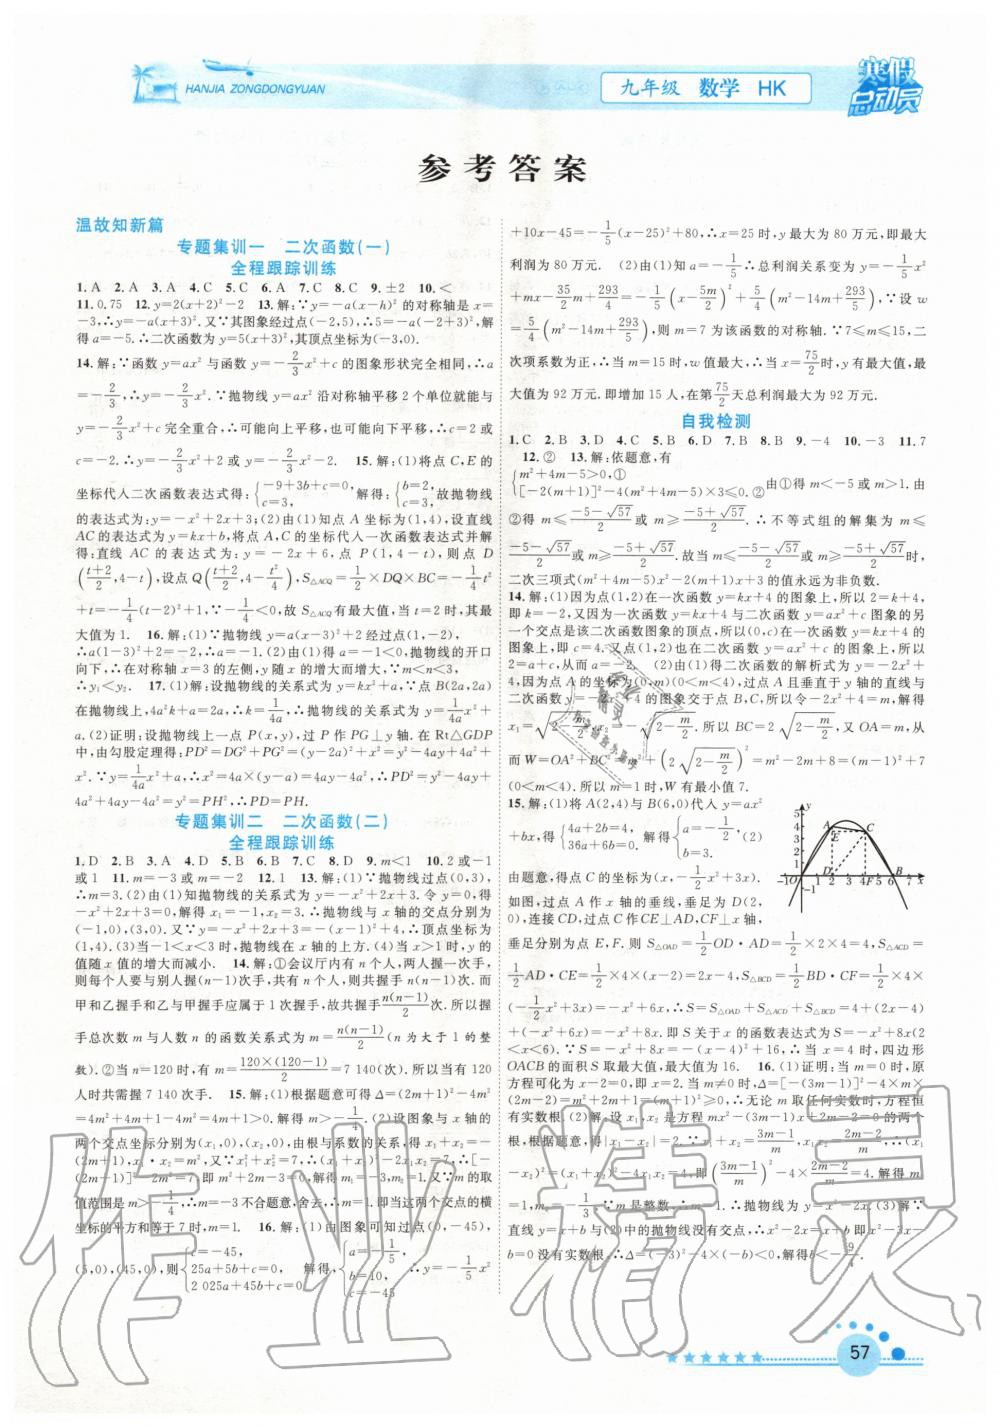 HANJIA ZONGDONGYUAN
九年级 数学 HK
寒假
总动员
参考答案
温故知新篇
专题集训一 二次函数(一)
全程跟踪训练
1.A 2.A 3.A 4.A 5.A 6.B 7.C 8.C 9.±2 10.<
11.0.75 12.y=2(x+2)²-2 13.解:∵y=-a(x-h)²的对称轴是x=
-3,∴y=-a(x+3)².又∵其图象经过点(-2,5),∴5=-a(-2+3)²,解
得a=-5.∴二次函数为y=5(x+3)²,其顶点坐标为(-3,0).
14.解:∵函数y=ax²与函数y=-2/3x²+c的图象形状完全相同,∴a
=-2/3,∴y=-2/3x².∵抛物线y=ax²沿对称轴平移2个单位就能与
y=-2/3x²+c完全重合,∴可能向上平移,也可能向下平移,∴c=2或
c=-2.∴y=-2/3x²+2或y=-2/3x²-2. 15.解:(1)将点C,E的
坐标代入二次函数表达式得:{-9+3b+c=0, c=3, 解得:{b=2, c=3, 故抛物线
的表达式为:y=-x²+2x+3;(2)由(1)知点A坐标为(1,4),设直线
AC的表达式为y=kx+n,将点A,C坐标代入一次函数表达式并解
得:直线AC的表达式为:y=-2x+6,点P(1,4-t),则点D
((t+2)/2,4-t),设点Q((t+2)/2,4-t²/4),S△ACQ=1/2×DQ×BC=-1/4t²
+t=-1/4(t-2)²+1,∵-1/4<0,故S△ACQ有最大值,当t=2时,其最
大值为1. 16.解:(1)∵抛物线y=a(x-3)²+2经过点(1,-2),
∴a(1-3)²+2=-2,∴a=-1.(2)由(1)得a=-1<0,抛物线的开口
向下,∴在对称轴x=3的左侧,y随x的增大而增大,∵m<n<3,
∴y₁<y₂. 17.(1)解:设抛物线的关系式为y=kx²,∵点B(2a,2a)
在抛物线上,4a²k+a=2a,∴k=1/4a,∴抛物线的关系式为y=1/4ax²+
a.(2)证明:设抛物线上一点P(x,y),过P作PG⊥y轴.在Rt△GDP
中,由勾股定理得:PD²=DG²+PG²=(y-2a)²+x²=y²-4ay+4a²+
x².∵y=1/4ax²+a,∴x²=4a×(y-a)=4ay-4a²,∴PD²=y²-4ay+
4a²+4ay-4a²=y²=PH²,∴PD=PH.
专题集训二 二次函数(二)
全程跟踪训练
1.D 2.B 3.A 4.D 5.B 6.B 7.C 8.D 9.m<1 10.2或-1
或1 11.m=-3或m=-2 12.1 13.解:(1)∵抛物线过点(0,3),
∴m=3.(2)由(1)知抛物线的表达式为y=-x²+2x+3.令y=0,得
-x²+2x+3=0,解得x₁=-1,x₂=3.∴抛物线与x轴的交点分别为
(-1,0),(3,0).∵y=-x²+2x+3=-(x-1)²+4,∴抛物线顶点坐标为
(1,4).(3)当-1<x<3时,抛物线在x轴的上方.(4)当x>1时,y的
值随x值的增大而减小. 14.解:①会议厅内有n个人,两人握一次手,
则每个人要与别人握(n-1)次手,共有n个人,则共握手n(n-1)次.而
甲和乙握手和乙与甲握手应属于1次握手,故共握手n(n-1)/2次.所以握
手总次数m与人数n的函数关系式为m=n(n-1)/2(n为大于1的整
数).②当n=120时,有m=120×(120-1)/2=7 140(次).所以当有120
人时共需握7 140次手. 15.解:(1)根据题意可得Δ=(2m+1)²
=4m²+4m+1-4m²=4m+1>0.解得m>-1/4.(2)设图象与x轴的
两个交点坐标分别为(x₁,0),(x₂,0),由根与系数的关系,得x₁+x₂=
-(2m+1),x₁·x₂=m².又∵x₁²+x₂²=7,∴(x₁+x₂)²-2x₁x₂=7,∴[-
(2m+1)]²-2m²=7,即m²+2m-3=0,解得m₁=-3,m₂=1.又∵m的取
值范围是m>-1/4,∴m=-3不合题意,舍去,∴m=1.即当这两个交点的横
坐标的平方和等于7时,m=1. 16.解:(1)由图象可知点(0,-45),
(5,0),(45,0),则{c=-45, 25a+5b+c=0, 2 025a+45b+c=0 解得,{a=-1/5, b=10, c=-45 ∴y=-1/5x²
+10x-45=-1/5(x-25)²+80,∴x=25时,y最大为80万元,即最大
利润为80万元. (2)由(1)知a=-1/5,∴总利润关系变为y=-1/5x²
+mx-35/2m+293/4=-1/5(x-5m/2)²+5/4(m²-14m+293/5),∵设w
=5/4(m²-14m+293/5),则m=7为该函数的对称轴.∵7≤m≤15,二
次项系数为正,∴当m=15时,w值最大,∴当x=75/2时,y有最大值,最
大值为92万元.即增加15人,在第75/2天总利润最大为92万元.
自我检测
1.C 2.B 3.D 4.C 5.B 6.D 7.B 8.B 9.-4 10.-3 11.7
12.② 13.解:依题意,有
{m²+4m-5>0,① [-2(m+1)]²-4(m²+4m-5)×3≤0.② 由①得m<-5或m>1.由
②得m≤(-5-√57)/2或m≥(-5+√57)/2.∴不等式组的解集为m≤
(-5-√57)/2或m≥(-5+√57)/2.故当m≤(-5-√57)/2或m≥(-5+√57)/2时,
二次三项式(m²+4m-5)x²-2(m+1)x+3的值永远为非负数.
14.解:(1)因为点(1,2)在一次函数y=kx+4的图象上,所以2=k+4,
即k=-2,又因为一次函数y=kx+4与二次函数y=ax²+c图象的另
一个交点是该二次函数图象的顶点,所以(0,c)在一次函数y=kx+4的
图象上,即c=4.又点(1,2)也在二次函数y=ax²+c的图象上,所以
2=a+c,从而a=-2.(2)由(1)得二次函数的解析式为y=-2x²
+4,因为点A的坐标为(0,m)(0<m<4),过点A且垂直于y轴的直线与
二次函数y=-2x²+4的图象交于点B,C,所以令-2x²+4=m,解得
x₁=√(2-m/2),x₂=-√(2-m/2).所以BC=2√(2-m/2),又OA=m,从
而W=OA²+BC²=m²+(2√(2-m/2))²=m²-2m+8=(m-1)²+7
(0<m<4).所以m=1时,W有最小值7.
15.解:(1)将A(2,4)与B(6,0)代入y=ax²
+bx,得{4a+2b=4, 36a+6b=0. 解得{a=-1/2, b=3. (2)
由题意,得点C的坐标为(x,-1/2x²+3x).
如图,过点A作x轴的垂线,垂足为D(2,
0),连接CD,过点C作CE⊥AD,CF⊥x轴,
垂足分别为点E,F.则S△OAD=1/2OD·AD=1/2×2×4=4,S△ACD=
1/2AD·CE=1/2×4×(x-2)=2x-4,S△BCD=1/2BD·CF=1/2×4×
(-1/2x²+3x)=-x²+6x,∴S=S△OAD+S△ACD+S△BCD=4+(2x-4)
+(-x²+6x)=-x²+8x.即S关于x的函数表达式为S=-x²+8x(2
<x<6).∵S=-x²+8x=-(x-4)²+16,∴当x=4时,四边形
OACB的面积S取最大值,最大值为16. 16.(1)证明:当m=0时,原
方程可化为x-2=0,即x=2.当m≠0时,Δ=[-(3m-1)]²-4×m×
(2m-2)=m²+2m+1=(m+1)²≥0.∴无论m取任何实数时,方程恒
有实数根.(2)解:设x₁,x₂是方程mx²-(3m-1)x+2m-2=0的两个
根,根据题意,得|x₁-x₂|=2,∵x₁+x₂=(3m-1)/m,x₁x₂=(2m-2)/m,∴(x₁
-x₂)²=(x₁+x₂)²-4x₁x₂=4,即((3m-1)/m)²-4×(2m-2)/m=4.解得m
=1,m=-1/3,∵m是整数,∴m=1,∴抛物线为y=x²-2x.(3)解:∵
直线y=x+b与(2)中的抛物线没有交点,∴x²-2x=x+b即x²-3x-
b=0没有实数根,∴Δ=(-3)²-4×(-b)<0,解得b<-9/4.
y
5
4
3
2
1
-1 O 1 2 3 4 5 6 7 x
-1
A E C D F B
作业精灵
57